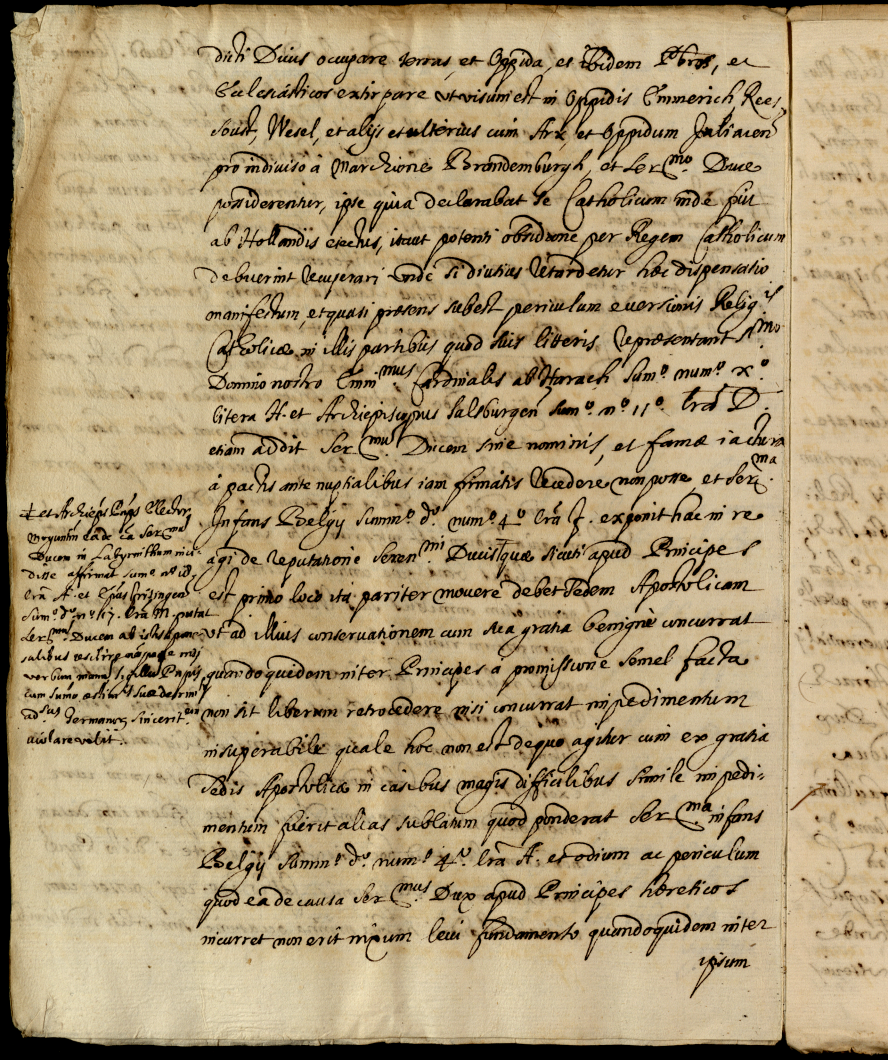 dicti Ducis occupare terras, et Oppida, et ibidem Pbros, et
Ecclesiasticos extirpare ut visum est in Oppidis Emmerich, Rees,
Soust, Wesel, et alijs et ulterius cum Arx, et Oppidum Juliacen
pro indiviso á Marchione Brandemburgh, et Ser.mo Duce
possiderentur, ipse quia declarabat se Catholicum inde fuit
ab Hollandis eiectus, itaut potenti obsidione per Regem Catholicum
debuerint recuperari unde si diutius retardetur hæc dispensatio
manifestum, et quasi præsens subest periculum eversionis Relig.is
Catholicæ in illis partibus quod suis litteris repræsentant S.mo
Domino nostro Emin.mus Cardinalis ab Harach sum.o num.o x.o
litera H. et Archiepiscopus Salsburgen sum.o n.o 11.o lrã D.
etiam addit Ser.mum Ducem sine nominis, et famæ iactura
á pactis ante nuptialibus iam firmatis recedere non posse et Ser.ma
Infans Belgij summ.o d.o num.o 4.o lrã J. exponit hac in re
agi de reputatione Seren.mi Ducis quæ sicuti apud Principes
est primo loco ita pariter movere debet Sedem Apostolicam
ut ad illius conservationem cum sua gratia benigne concurrat
quandoquidem inter Principes á promissione semel facta
non sit liberum retrocedere nisi concurrat impedimentum
insuperabile quale hoc non est de quo agitur cum ex gratia
Sedis Apostolicæ in casibus magis difficilibus simile impedi-
mentum fuerit alias sublatum quod ponderat Ser.ma infans
Belgij summ.o d.o num.o 4.o lrã A. et odium ac periculum
quod ea de causa Ser.mus Dux apud Principes hæreticos
incurret non erit nixum levi fundamento quandoquidem inter
ipsum
‡ et Archiepũs Pnps Elector
Moguntin ea de cã Ser.mum
Ducem in Labyrinthum inci-
disse affirmat sum.o n.o
lrã A. et Epũs Frisingen
Sum.o d.o n.o 17. lrã M. putat
Ser.mum Ducem ab
salibus resilire
verbum
cum sumo suæ
ad Germanos
violare velit.